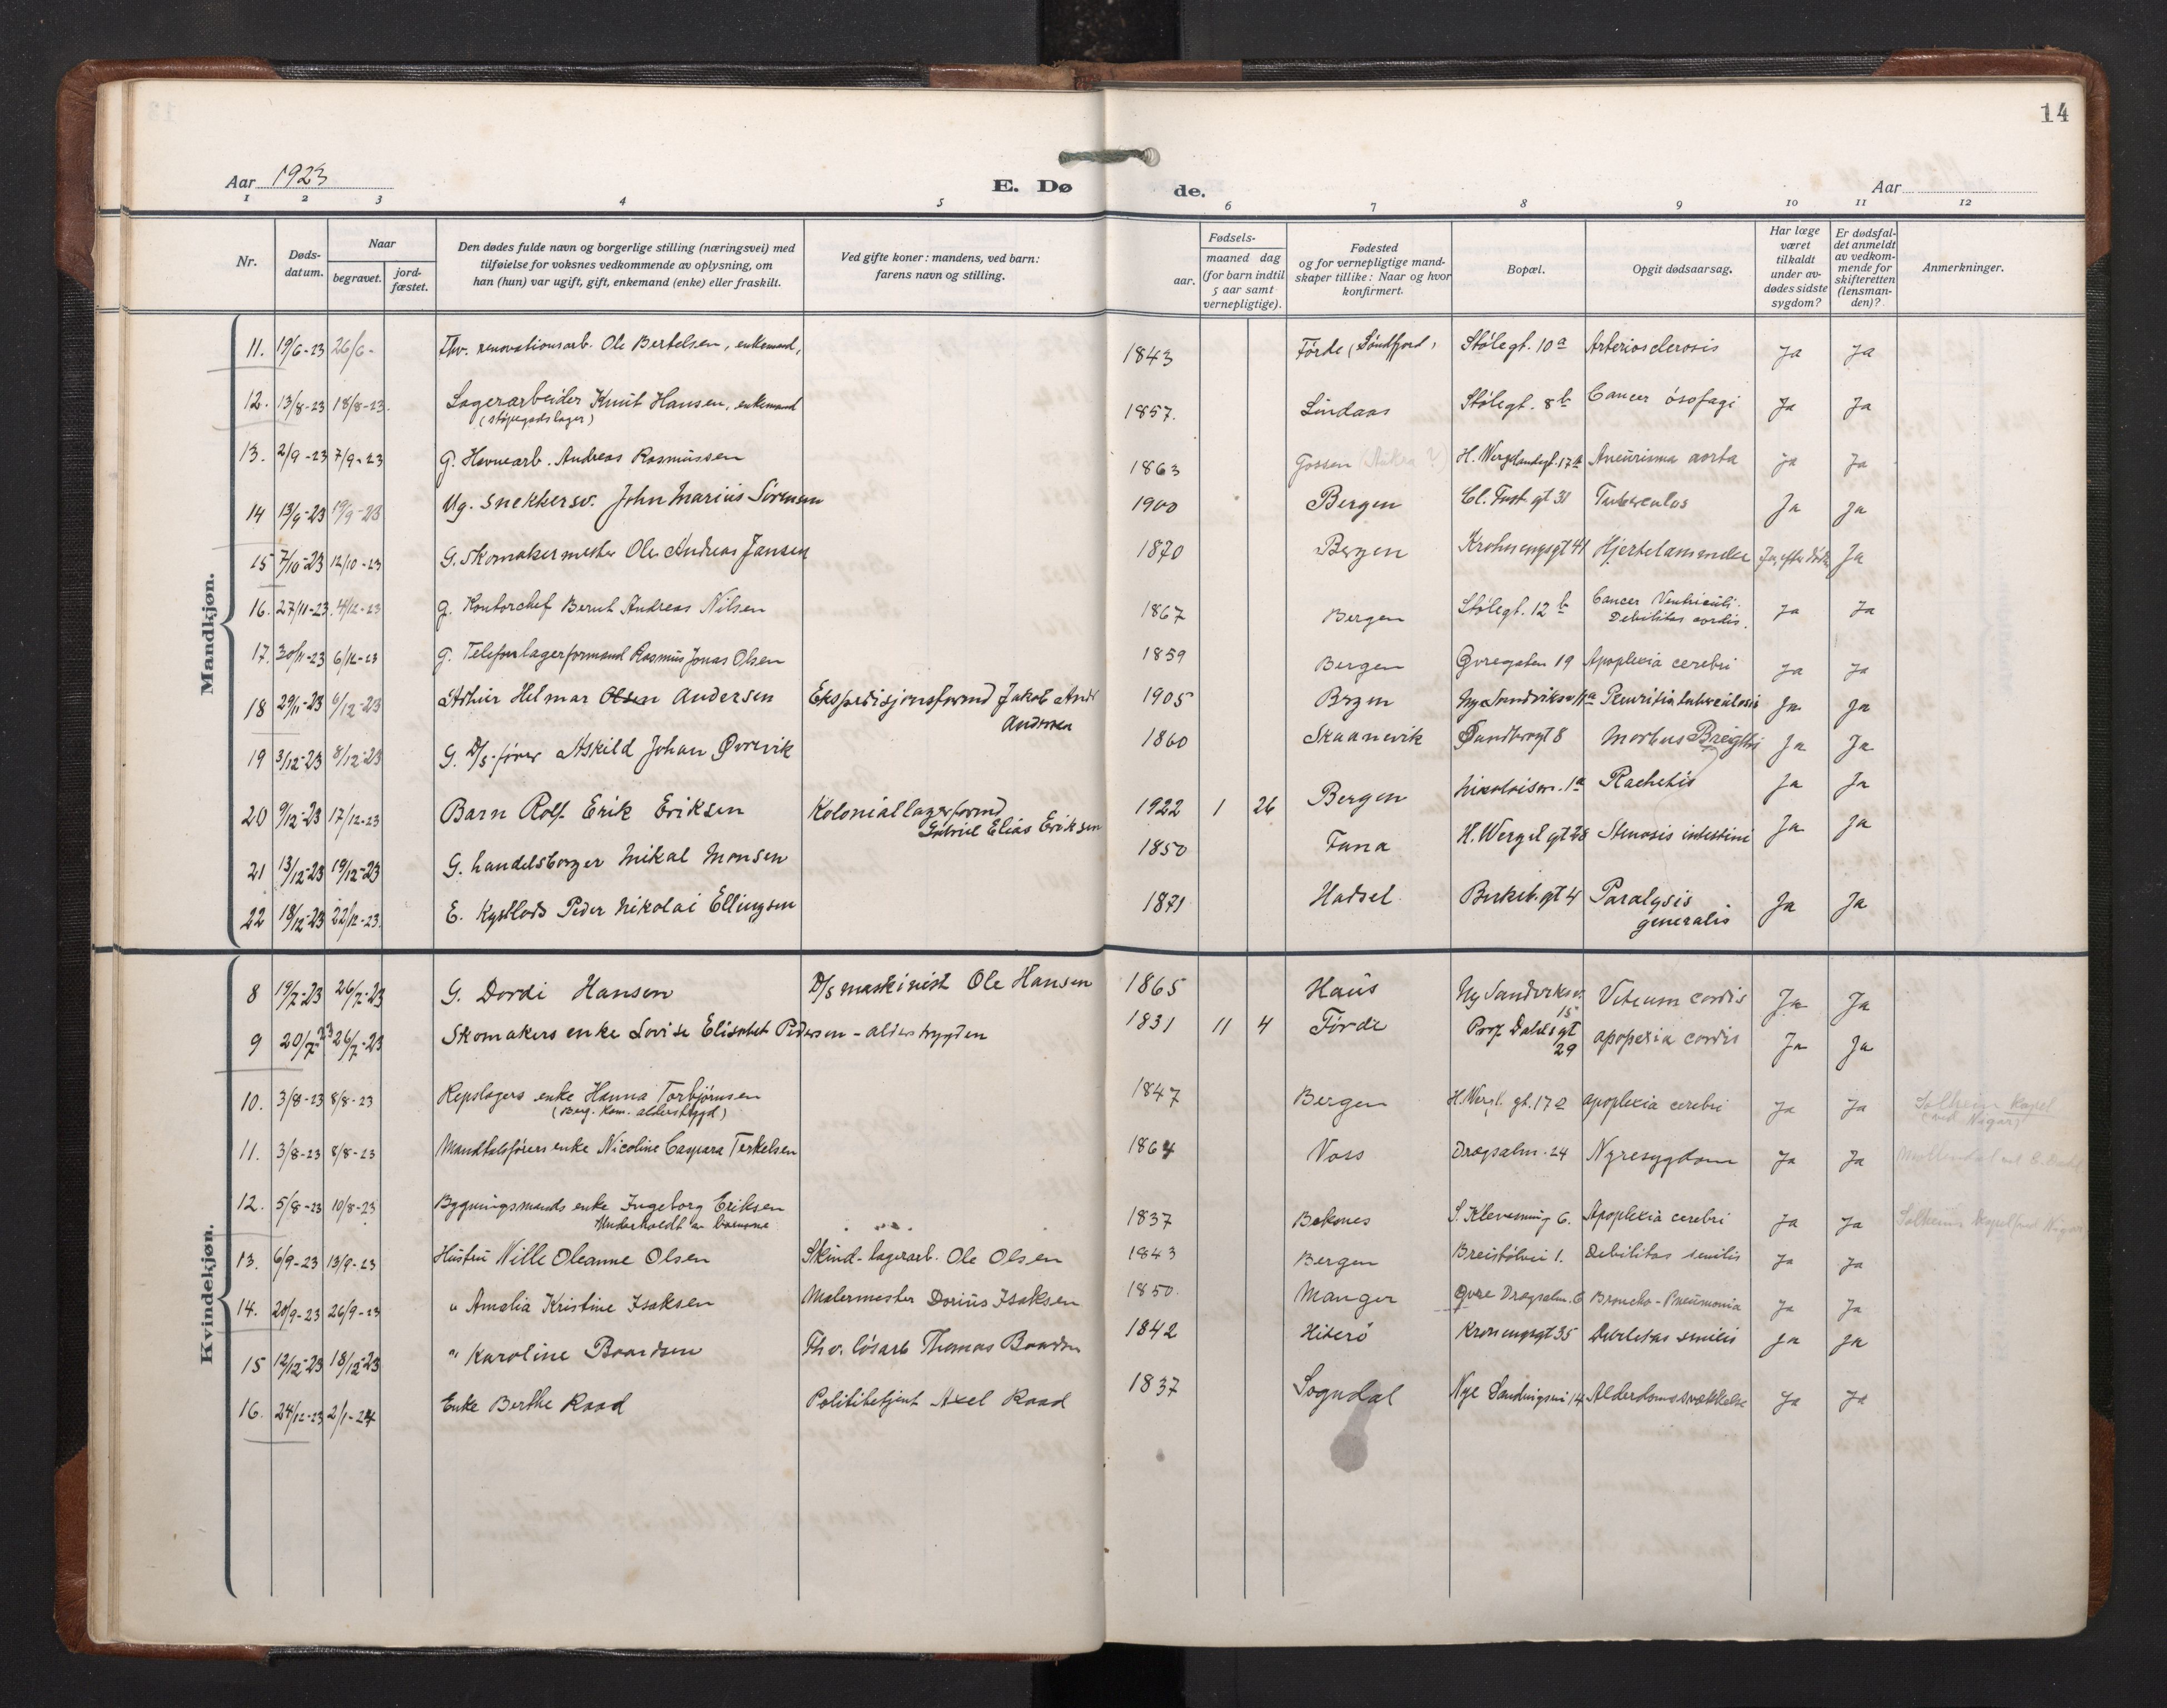 14
Aar 1923
E. Dø de.
Aar
1 2 3 4 5 6 7 8 9 10 11 12
Nr.
Døds-
datum.
Naar
begravet.
jord-
fæstet.
Den dødes fulde navn og borgerlige stilling (næringsvei) med
tilføielse for voksnes vedkommende av oplysning, om
han (hun) var ugift, gift, enkemand (enke) eller fraskilt.
Ved gifte koner: mandens, ved barn:
farens navn og stilling.
Fødsels-
aar.
maaned dag
(for barn indtil
5 aar samt
vernepligtige).
Fødested
og for vernepligtige mand-
skaper tillike: Naar og hvor
konfirmert.
Bopæl.
Opgit dødsaarsag.
Har læge
været
tilkaldt
under av-
dødes sidste
sygdom?
Er dødsfal-
det anmeldt
av vedkom-
mende for
skifteretten
(lensman-
den)?
Anmerkninger.
Mandkjøn.
11. 19/6-23 26/6- Fhv. renovationsarb. Ole Bertelsen, enkemand, 1843 Förde (Söndfjord, Stölegt. 10a Arteriosclerosis Ja Ja
12. 13/8-23 18/8-23. Lagerarbeider Knut Hansen, enkemand 1857. Lindaas Stölegt. 8b Cancer ösofagi Ja Ja
(støpegodslager)
13. 2/9-23 7/9-23 G. Havnearb. Andreas Rasmussen 1863 Gossen H. Wergelandsgt. 17a Aneurisma aorta Ja Ja
14 13/9-23 19/9-23 Ug. snekkersv. John Marius Sørensen 1900 Bergen Cl. Fast gt 31 Tuberculos Ja Ja
15 7/10-23 12/10-23 G. Skomakermester Ole Andreas Jansen 1870 Bergen Krohnengsgt 41 Hjertelammelse Ja, efter døden Ja
16. 27/11-23. 4/12-23 G. Kontorchef Bernt Andreas Nilsen 1867 Bergen Stölegt. 12b Cancer Ventriculi. Ja Ja
Debilitas cordis.
17. 30/11-23 6/12-23 G. Telefonlagerformand Rasmus Jonas Olsen 1859 Bergen Øvregaten 19 Apoplexia cerebri Ja Ja
18 29/11-23 6/12-23 Arthur Helmar Olsen Andersen Ekspedisjonsformd Jakob Andr 1905 Bergen Nye Sandviksv 11a Pleuritis tuberculosis Ja Ja
Andersen
19 3/12-23 8/12-23 G. D/S.fører Askild Johan Øvrevik 1860 Skaanevik Sundtsgt 8 Morbus Brigthi Ja Ja
20 9/12-23 17/12-23 Barn Rolf Erik Eriksen Koloniallagerformd 1922 1 26 Bergen Nikolaism. 1a Rachitis Ja Ja
Gabriel Elias Eriksen
21 13/12-23 19/12-23 G. handelsborger Mikal Monsen 1850 Fana H. Wergel gt 28 Stenosis intestini Ja Ja
22 18/12-23 22/12-23. E. Kystlods Peder Nikolai Ellingsen 1871 Hadsel Birkeb. gt 4 Paralysis Ja Ja
generalis
Kvindekjøn.
8 19/7-23 26/7-23 G. Dordi Hansen D/S maskinist Ole Hansen 1865 Haus Ny Sandviksv. Vitium cordis Ja Ja
15
9 20/7-23 26/7-23 Skomakers enke Lovise Elisabet Pedersen - alderstrygden 1831 11 4 Förde Prof Dahls gt apopexia cordis Ja Ja
29
10. 3/8-23 8/8-23 Repslagers enke Hanna Torbjørnsen 1847 Bergen H. Wergl. gt. 17a apoplexia cerebri Ja Ja Solheim Kapel
(Berg. kom. alderstrygd) (ved Nigar)
11. 3/8-23 8/8-23 Mandtalsførers enke Nicoline Caspara Terkelsen 1864 Voss Dragsalm. 24 Nyresygdom Ja Ja Møllendal
12. 5/8-23 10/8-23 Bygningsmands enke Ingeborg Eriksen 1837 Bokones S. Klevesmug 6. Apoplexia cerebri Ja Ja Solheims Kapel
Underholdt av børnene
13. 6/9-23 13/9-23 Hustru Nille Oleanne Olsen Skind-lagerarb. Ole Olsen 1843 Bergen Breistölvei 1. Debilitas senilis Ja Ja
14. 20/9-23 26/9-23 " Amalia Kristine Isaksen Malermester Dorius Isaksen 1850. Manger Øvre Dragsalm. 6 Broncho-Pneumonia Ja Ja
15 12/12-23 18/12-23 " Karoline Baardsen Fhv. løsarb Thomas Baardsen 1842 Hiterö Kronengsgt 35 Debilitas senilis Ja Ja
16. 24/12-23 2/1-24 Enke Berthe Raad Politibetjent Axel Raad 1837 Sogndal Nye Sandvigsvei 14 Alderdomssvækkelse Ja Ja